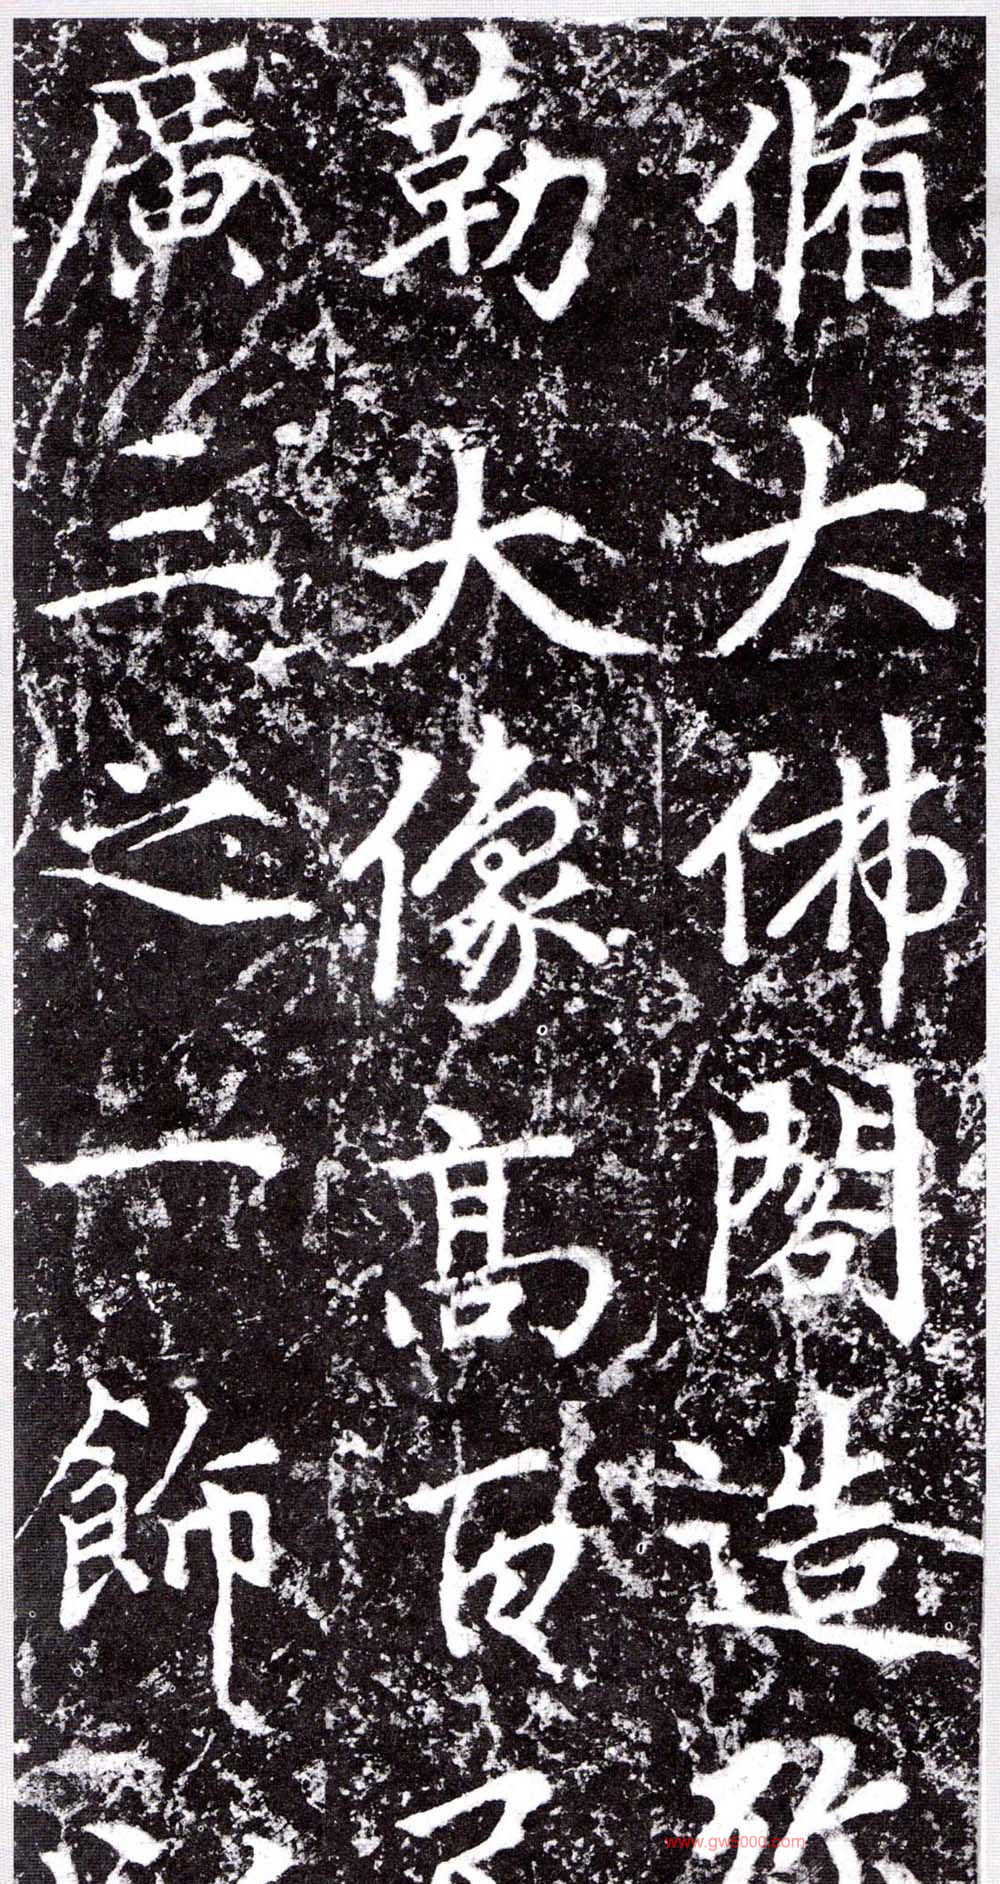 脩大佛閣造
勒大像高百
廣三之一飾
www.gw5000.com